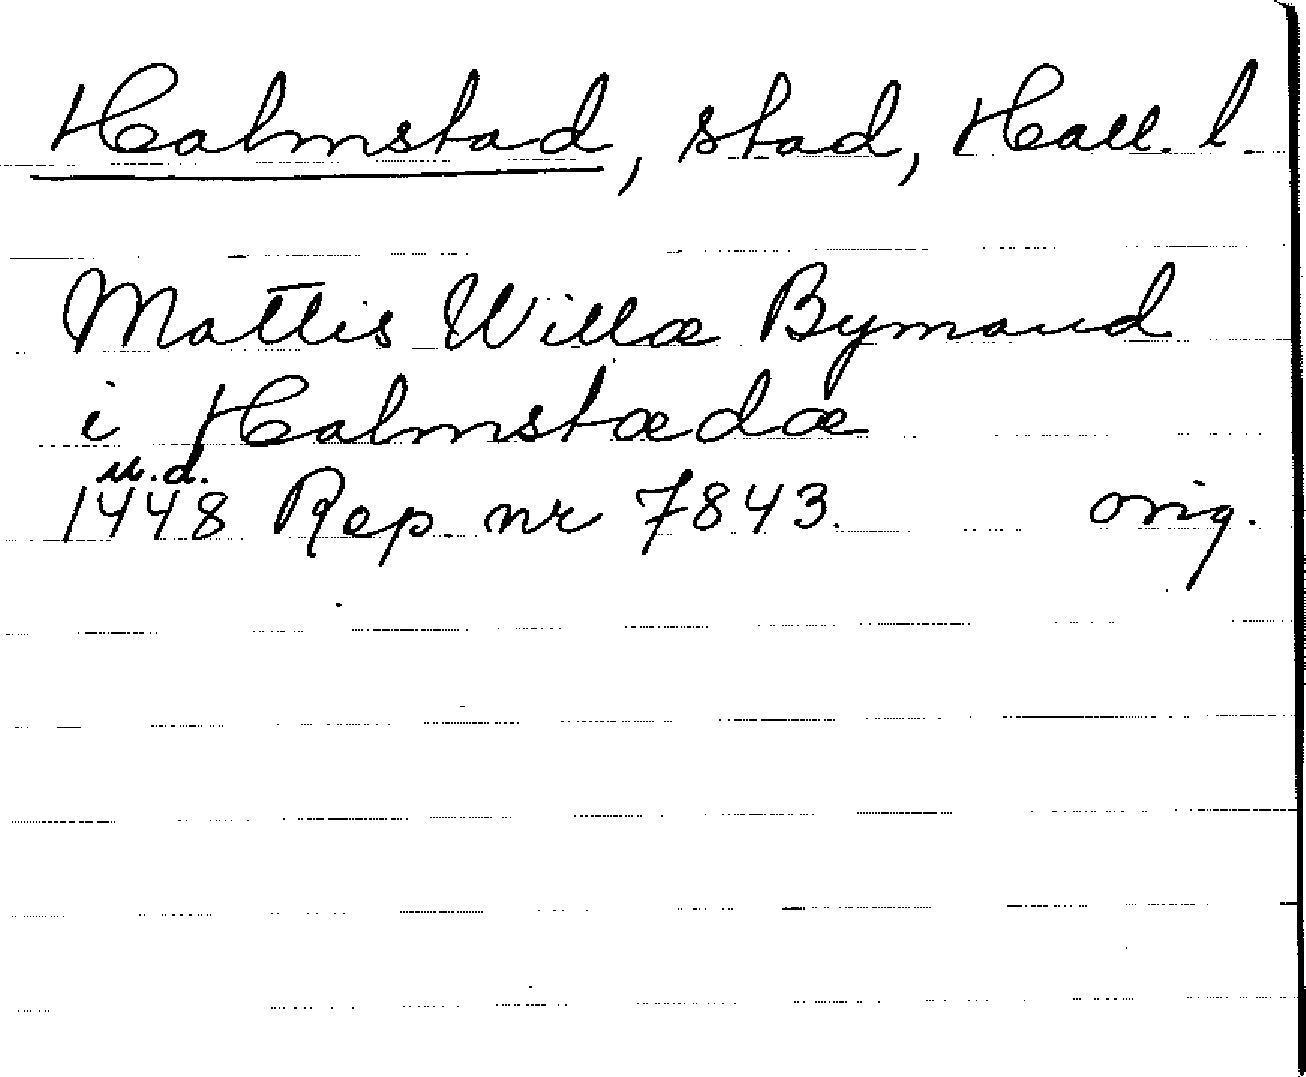 Halmstad, stad, Hall. l.
Mattis Willæ Bymand
i Halmstædæ
u.d.
1448 Rep. nr 7843. orig.